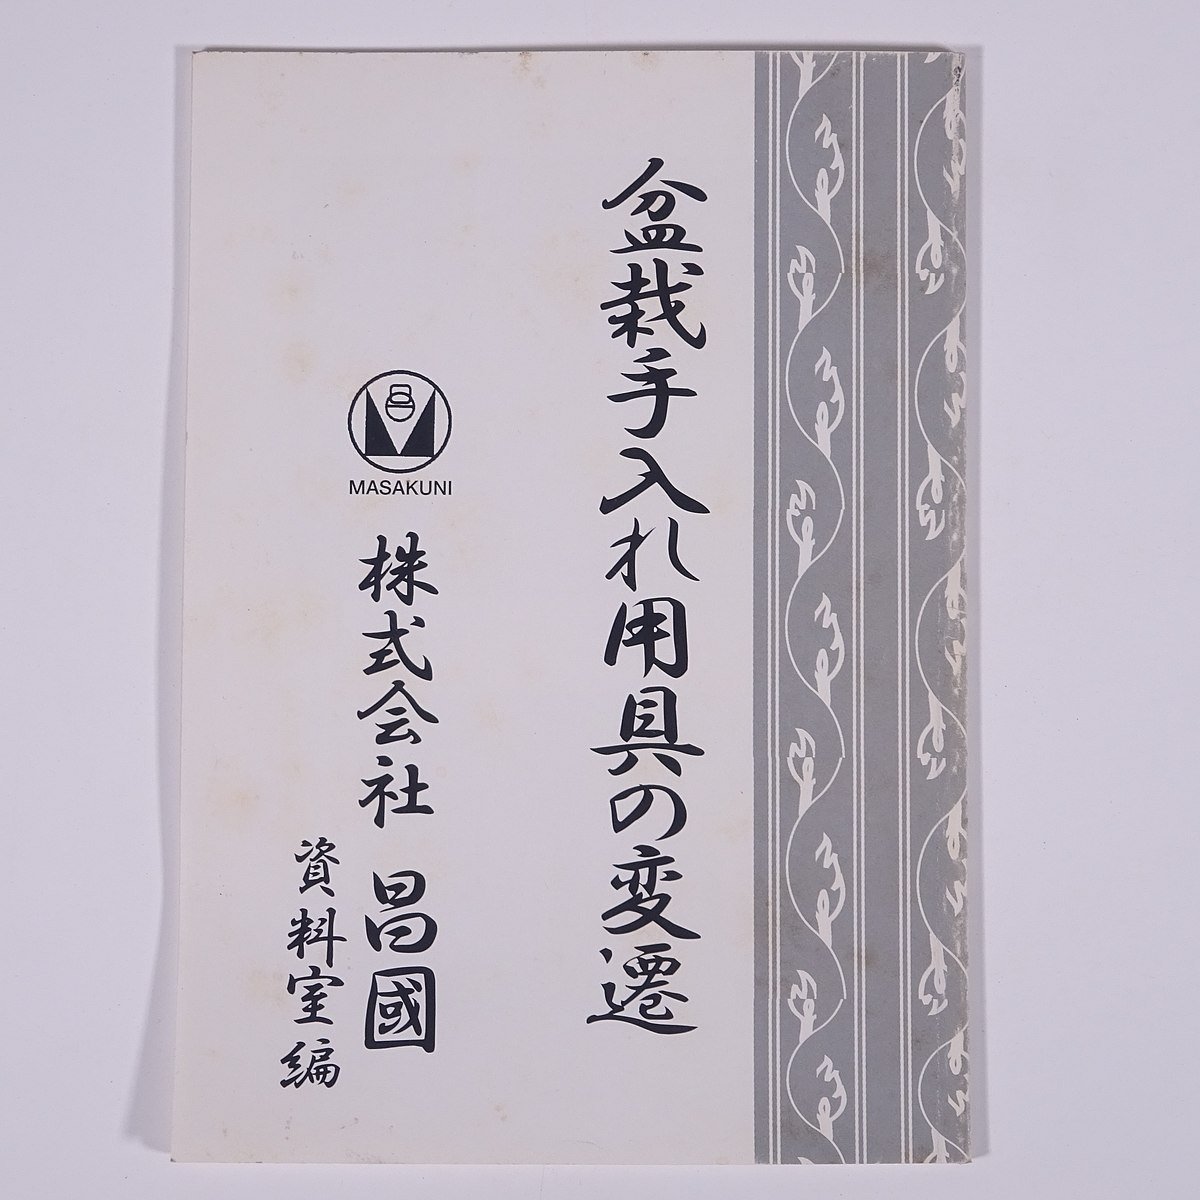 盆栽手入れ用具の変遷
昌
MASAKUNI
株式会社 昌國
資料室編